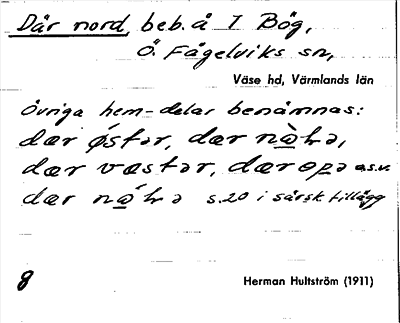 Där nord, beb. å I Bög,
Ö. Fågelviks sn,
Väse hd, Värmlands län
Övriga hem-delar benämnas:
dær östər, dær nɑ̀ɫə,
dær væstər, dær opə o.s.v.
dær nɑ́ɫə s. 20 i särsk. tillägg
g Herman Hultström (1911)